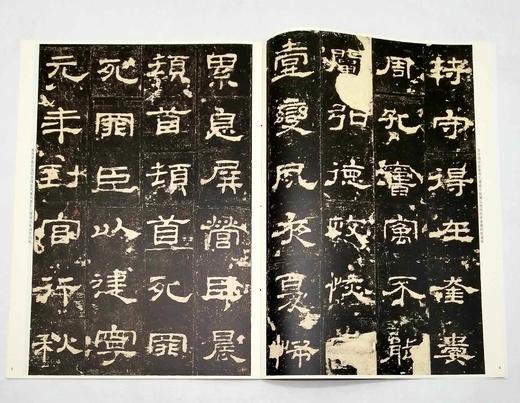 符守得在奎婁
周孔舊寓不能
闡弘德政恢
壹變夙夜憂怖
累息屏營臣晨
頓首頓首死罪
死罪臣以建寧
元年到官行秋